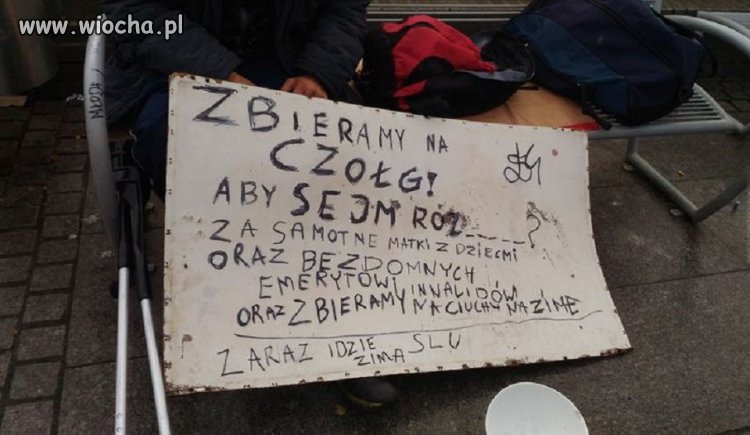 www.wiocha.pl
ZBIERAMY NA
CZOŁG!
ABY SEJM ROZ_____?
ZA SAMOTNE MATKI Z DZIEĆMI
ORAZ BEZDOMNYCH
EMERYTÓW I INWALIDÓW
ORAZ ZBIERAMY NA CIUCHY NA ZIMĘ
ZARAZ IDZIE
ZIMA SLU